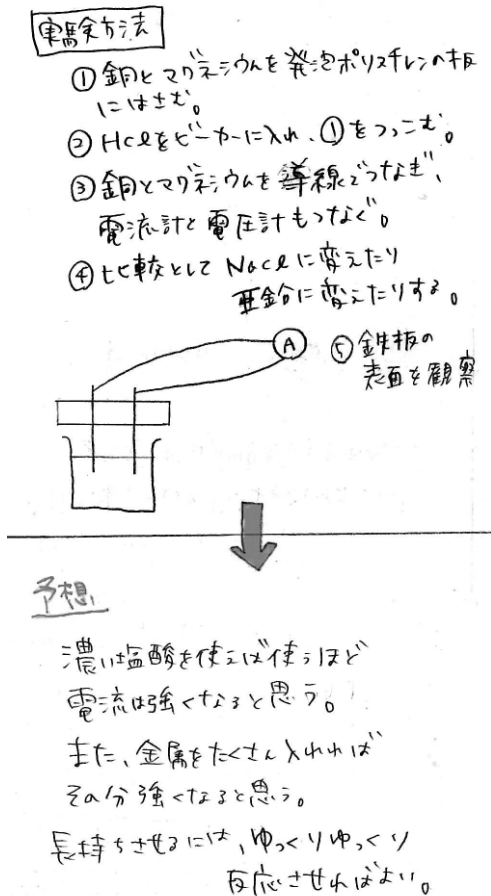 実験方法
① 銅とマグネシウムを発泡ポリスチレンの板
にはさむ。
② HClをビーカーに入れ、①をつっこむ。
③ 銅とマグネシウムを導線でつなぎ、
電流計と電圧計もつなぐ。
④ 比較として NaClに変えたり
亜鉛に変えたりする。
A
⑤ 鉄板の
表面を観察
予想
濃い塩酸を使えば使うほど
電流は強くなると思う。
また、金属をたくさん入れれば
その分強くなると思う。
長持ちさせるには、ゆっくりゆっくり
反応させればよい。